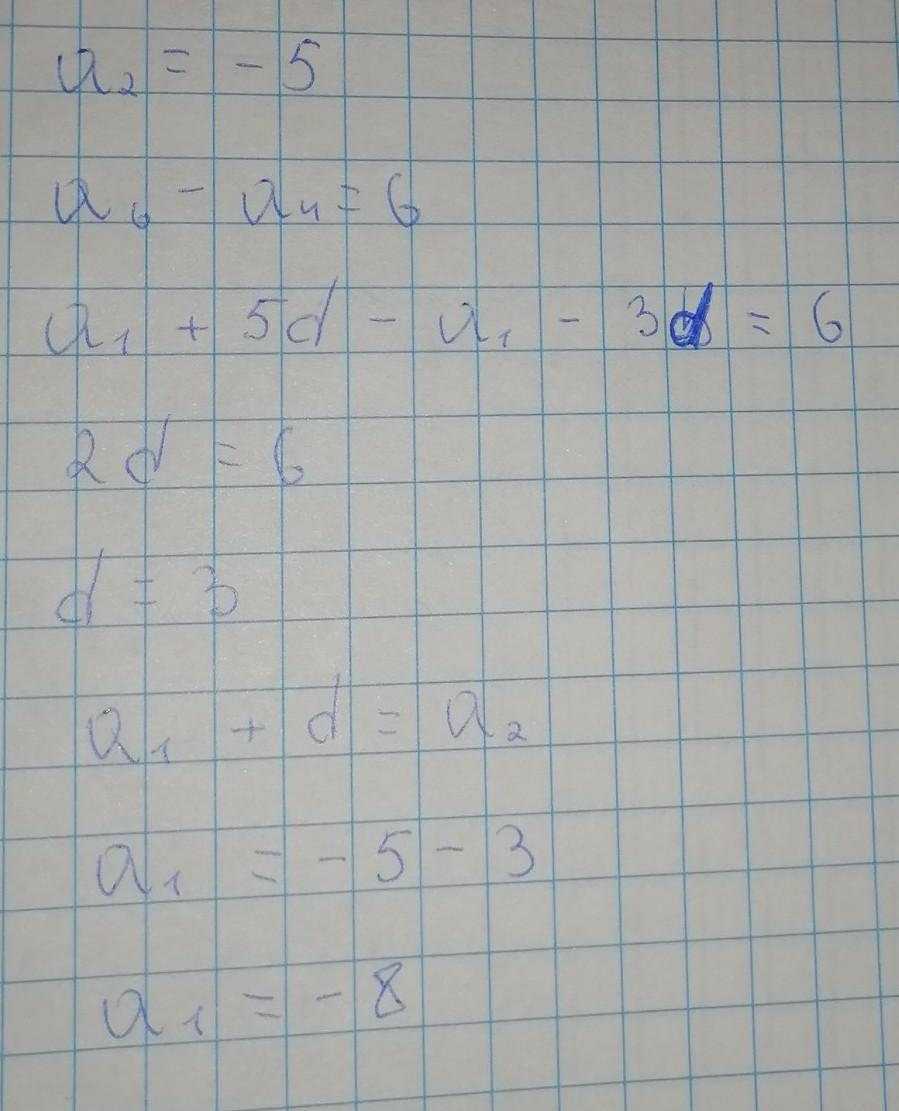 a₂ = - 5
a₆ - a₄ = 6
a₁ + 5d - a₁ - 3d = 6
2d = 6
d = 3
a₁ + d = a₂
a₁ = - 5 - 3
a₁ = - 8